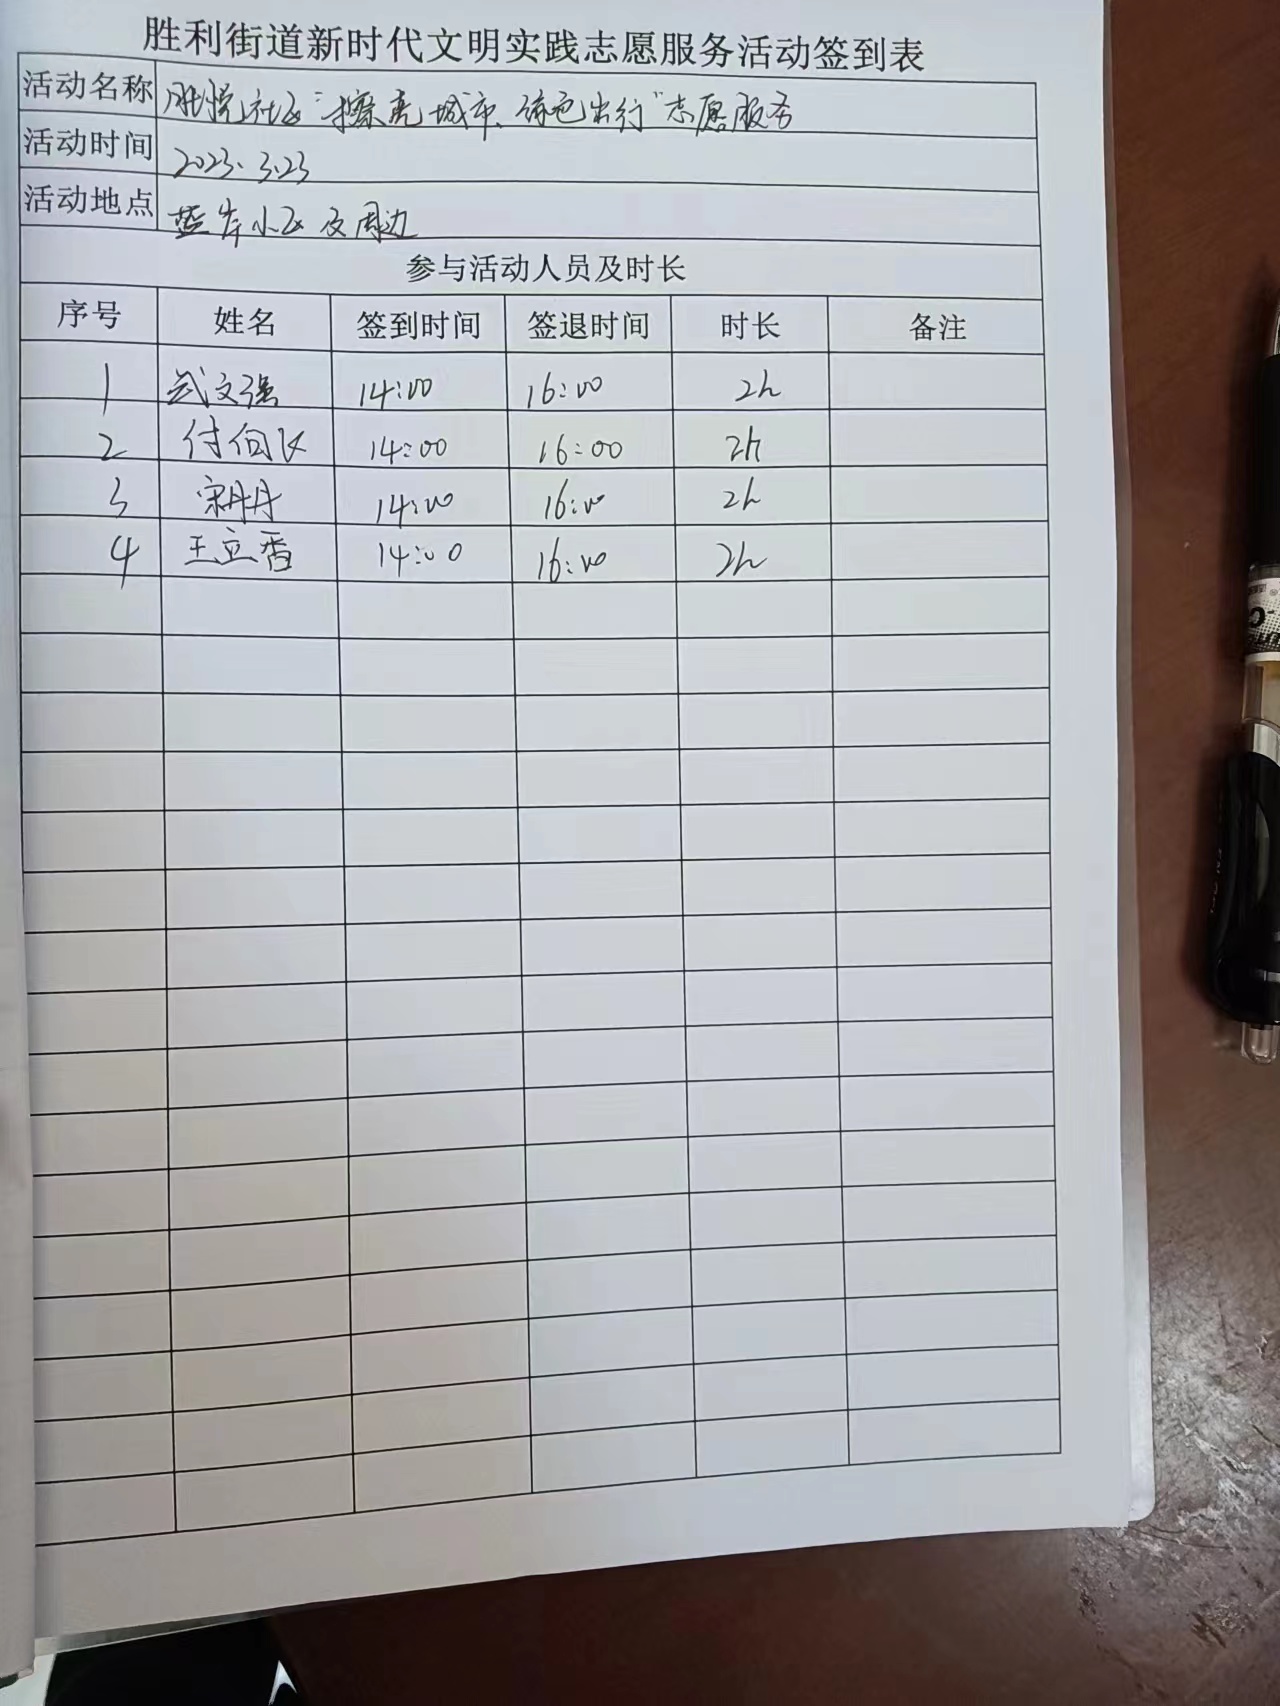 胜利街道新时代文明实践志愿服务活动签到表
活动名称 胜悦社区“擦亮城市、绿色出行”志愿服务
活动时间 2023.3.23
活动地点 蓝岸小区及周边
参与活动人员及时长
序号 姓名 签到时间 签退时间 时长 备注
1 武文强 14:00 16:00 2h
2 付 14:00 16:00 2h
3 宋丹丹 14:00 16:00 2h
4 王立香 14:00 16:00 2h